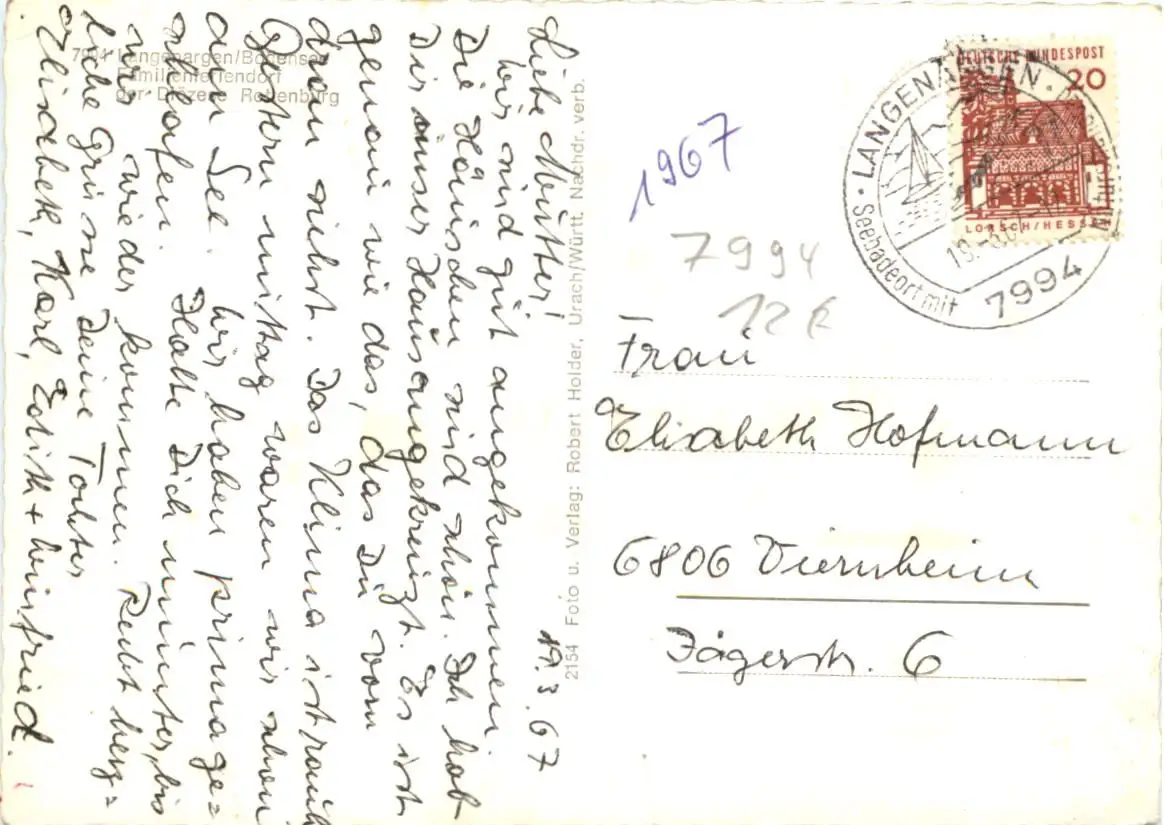 7994 Langenargen/Bodensee
Familienferiendorf
der Diözese Rottenburg
19.3.67
Liebe Mutter!
Wir sind gut angekommen.
Die Häuschen sind schön. Ich hab
Dir unser Haus angekreuzt. Es ist
genau wie das, das Du vorn
dran siehst. Das Klima ist rauh
Gestern mittag waren wir schon
am See. Wir haben prima ge=
schlafen. Halte Dich munter, bis
wir wieder kommen. Recht herz=
liche Grüsse Deine Tochter
Elisabeth, Karl, Edith + Winfried.
2154 Foto u. Verlag: Robert Holder, Urach/Württ. Nachdr. verb.
1967
7994
12 €
DEUTSCHE BUNDESPOST
20
LORSCH/HESSEN
LANGENARGEN
Seebadeort mit
7994
Frau
Elisabeth Hofmann
6806 Viernheim
Jägerstr. 6